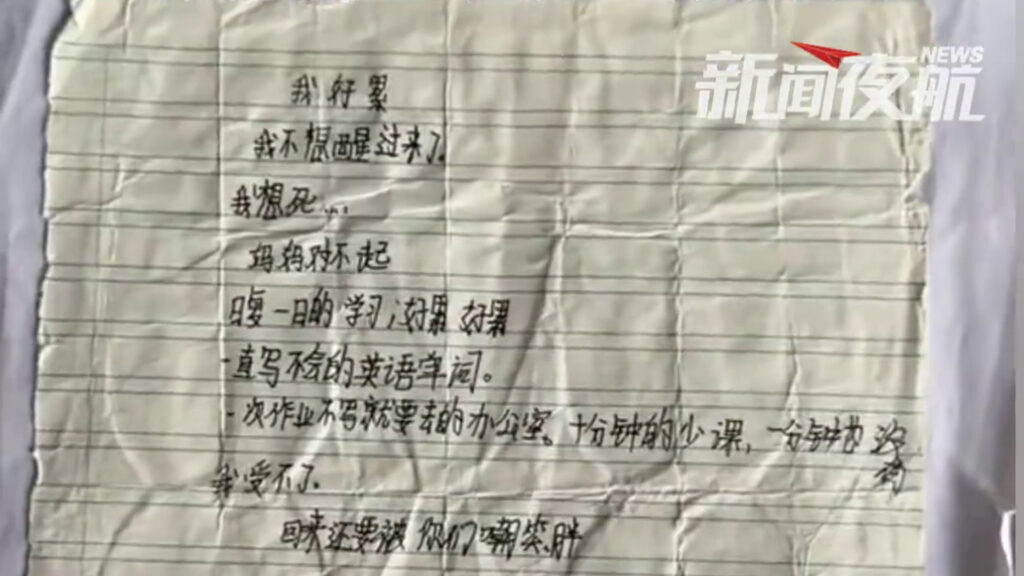 新闻夜航
NEWS
我好累
我不想醒过来了.
我想死...
妈妈对不起
日复一日的学习,好累 好累
一直写不会的英语单词。
一次作业不写就要去的办公室。十分钟的少课,一分钟也没
有
我受不了.
回来还要被你们嘲笑胖